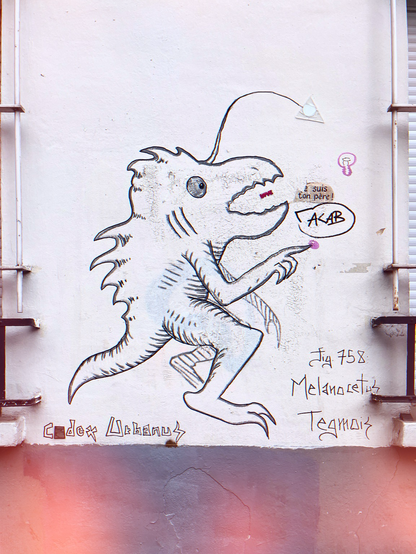 è suis
ton père!
ACAB
Fig 758
Melanocetus
Tegmois
Codex Urbanus